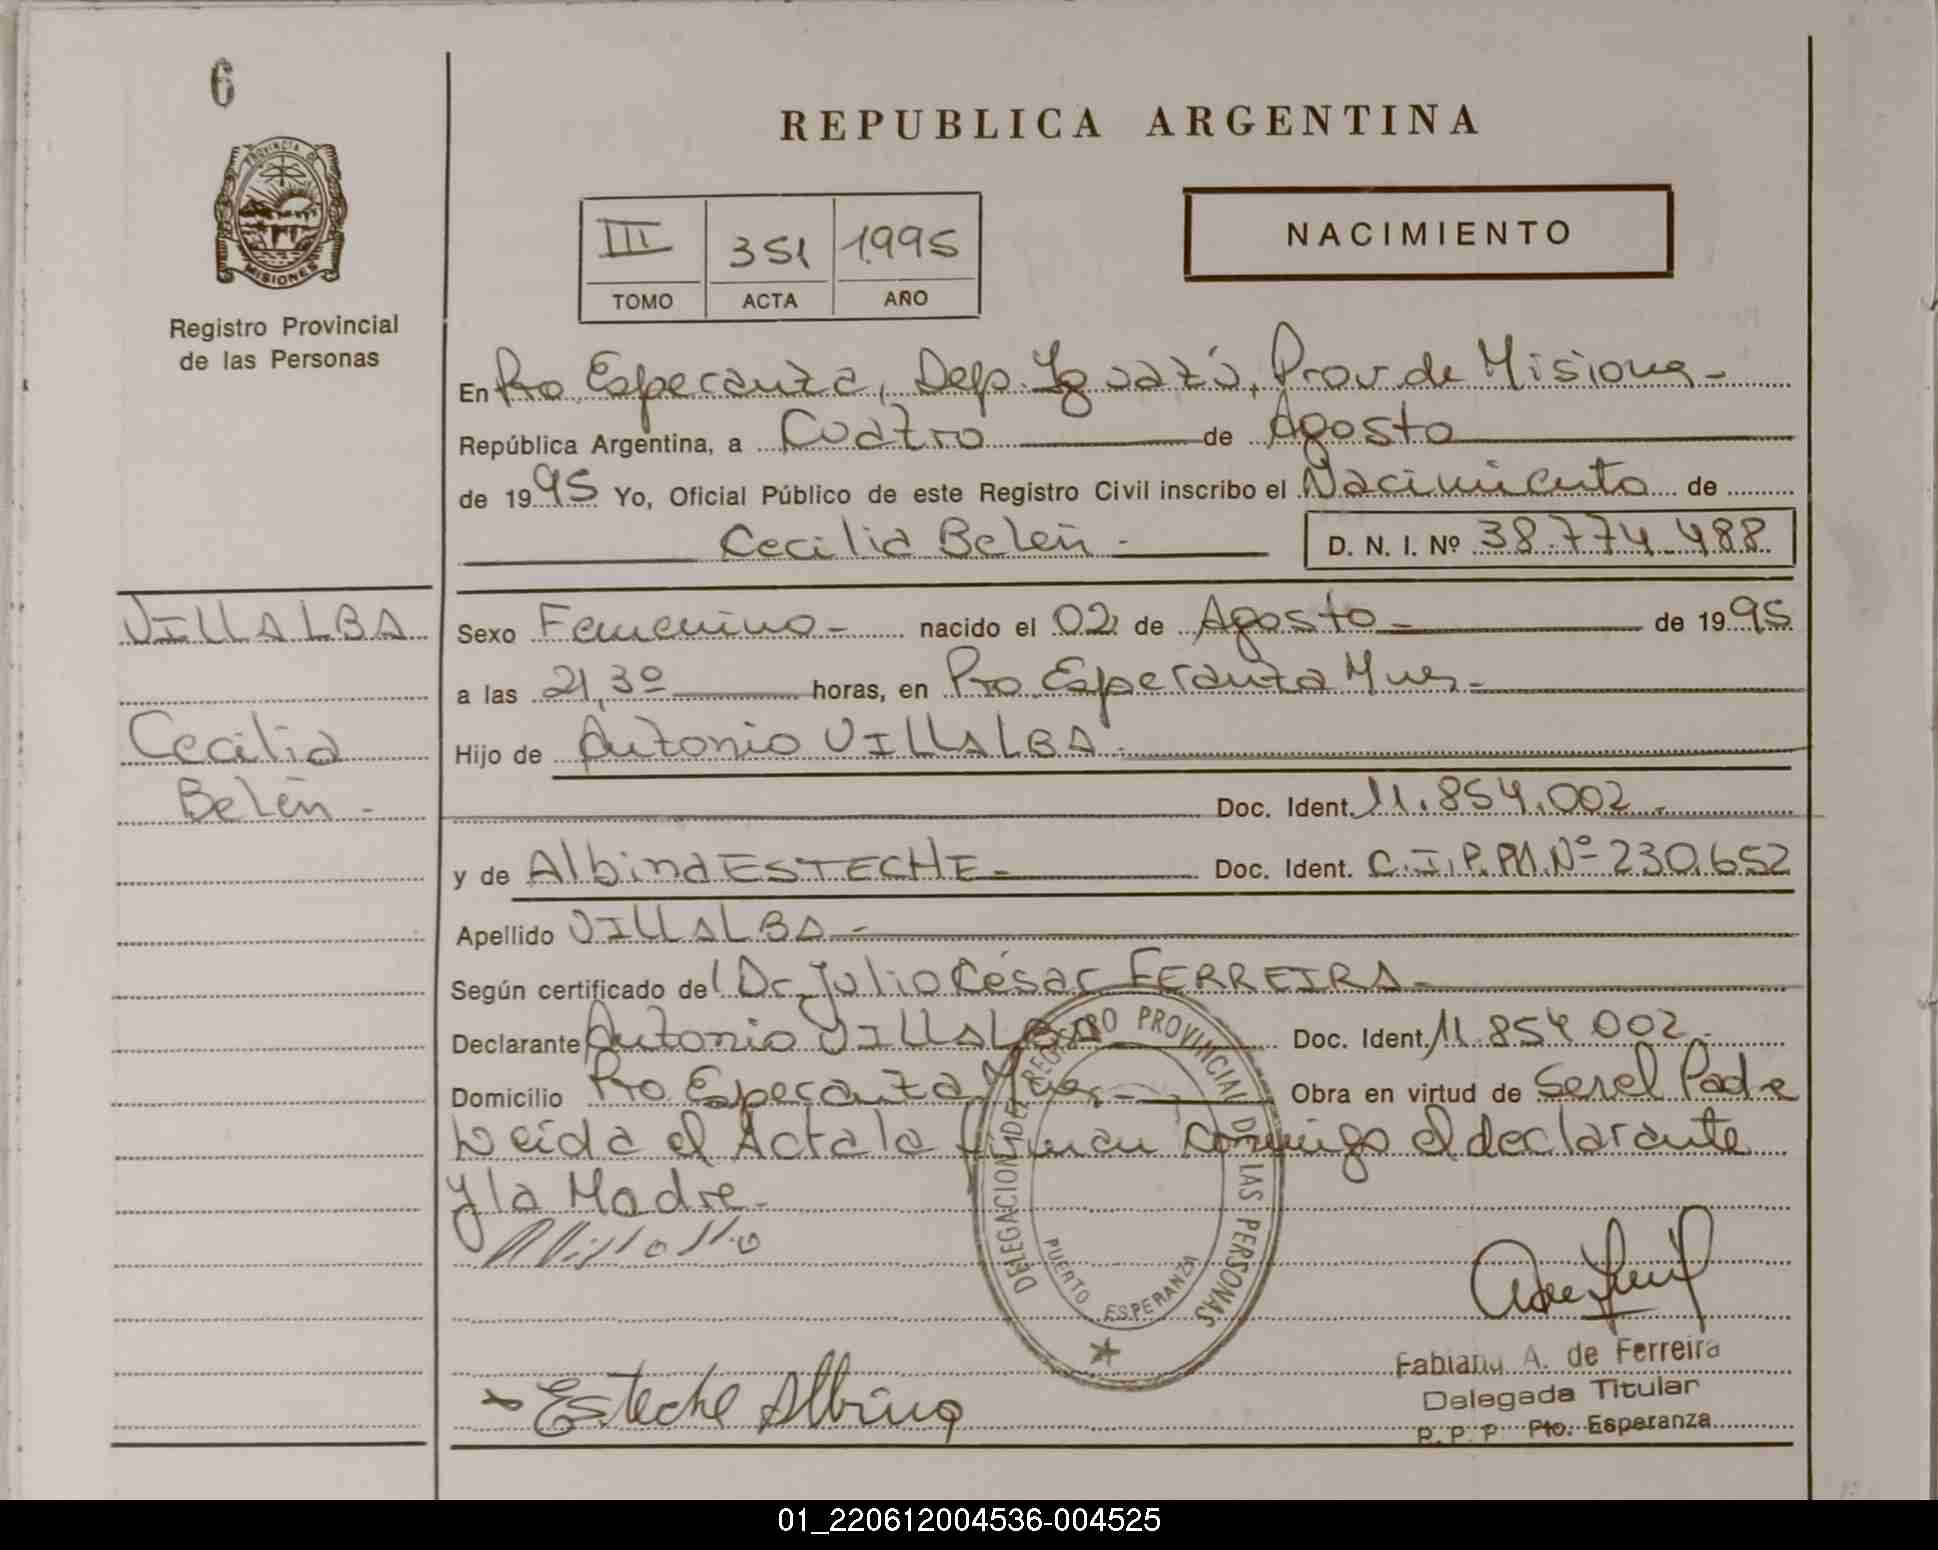 6
REPUBLICA ARGENTINA
PROVINCIA DE
MISIONES
Registro Provincial
de las Personas
III 351 1995
TOMO ACTA AÑO
NACIMIENTO
En Pto Esperanza, Dep. Iguazú, Prov. de Misiones -
República Argentina, a Cuatro de Agosto
de 1995 Yo, Oficial Público de este Registro Civil inscribo el Nacimiento de
Cecilia Belén - D. N. I. Nº 38.774.488
VILLALBA
Cecilia
Belén -
Sexo Femenino - nacido el 02 de Agosto - de 1995
a las 21,30 horas, en Pto Esperanza Mnes -
Hijo de Antonio VILLALBA -
Doc. Ident. 11.854.002 -
y de Albina ESTECHE - Doc. Ident. C.I.P.M.Nº 230.652
Apellido VILLALBA -
Según certificado del Dr. Julio César FERREIRA -
Declarante Antonio VILLALBA Doc. Ident. 11.854.002 -
Domicilio Pto Esperanza Mnes - Obra en virtud de Ser el Padre
Leída el Acta la firman conmigo el declarante
y la Madre -
DELEGACION DEL REGISTRO PROVINCIAL DE LAS PERSONAS
PUERTO ESPERANZA
Esteche Albina
Fabiana A. de Ferreira
Delegada Titular
R. P. P. Pto. Esperanza
01_220612004536-004525